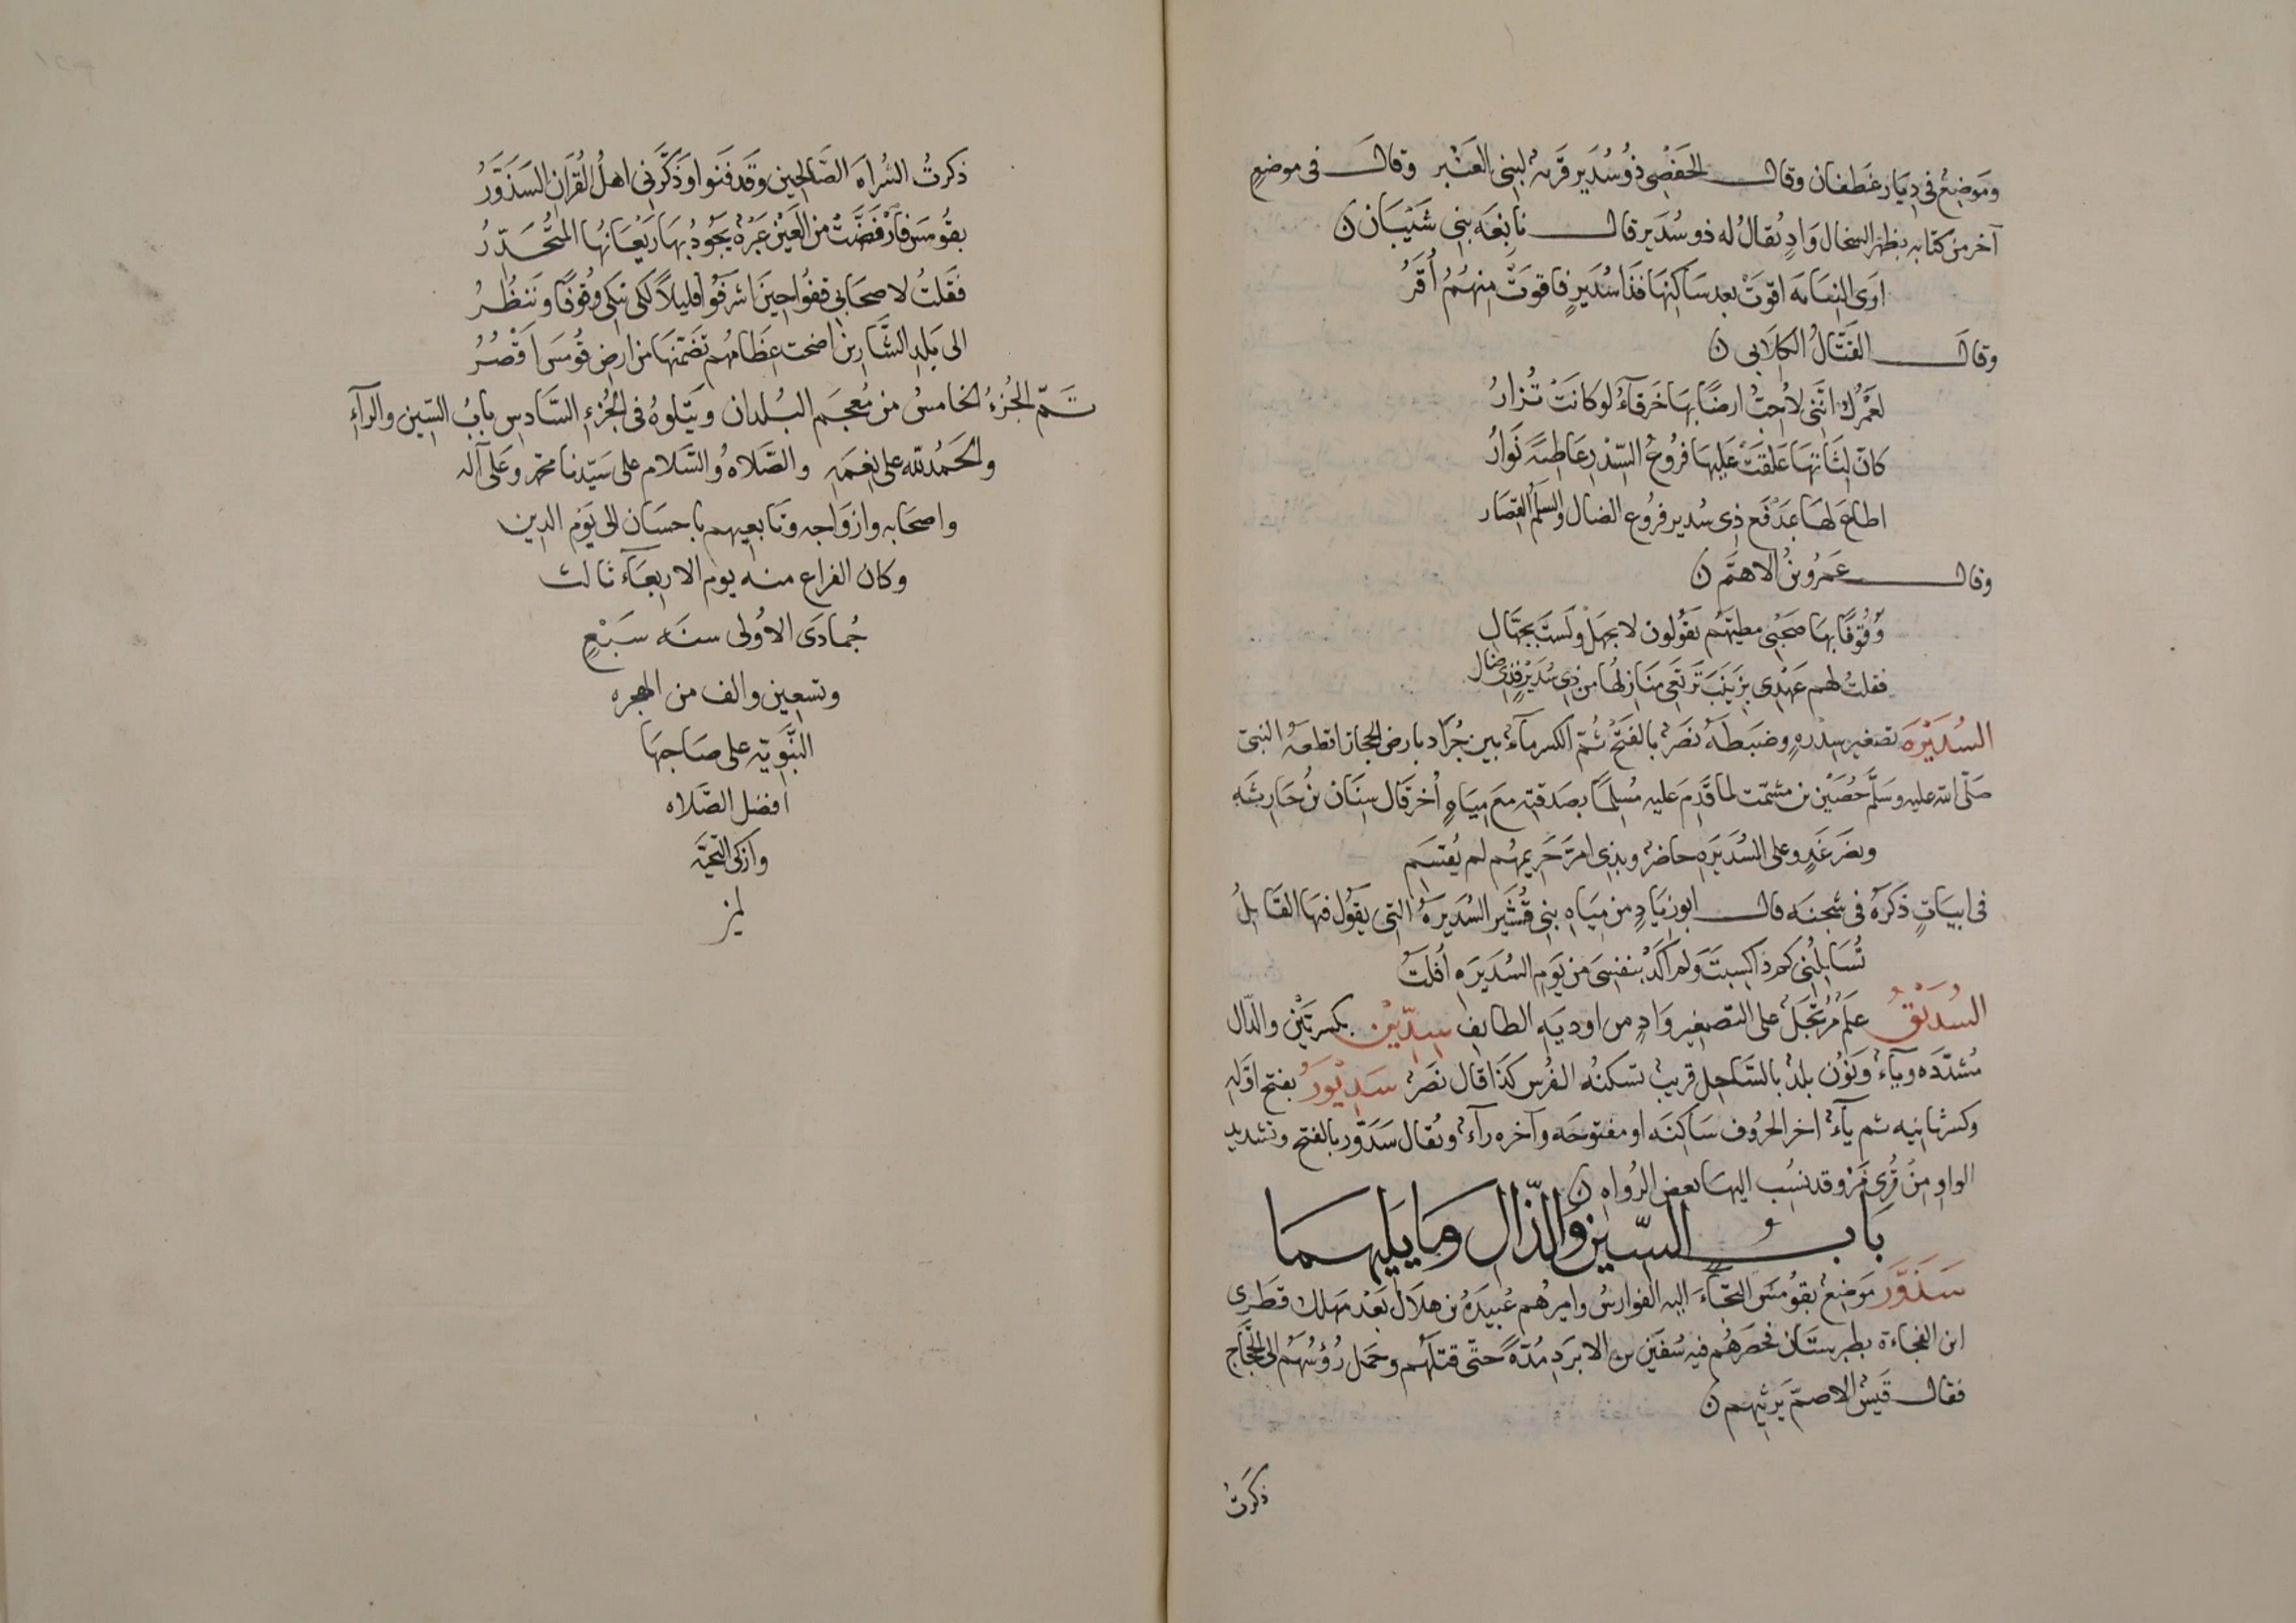 وموضع في ديار غطفان وقال الحفصي ذو سدير قرية لبني العنبر وقال في موضع
آخر من كتابه بظهر السخال واد يقال له ذو سدير قال نابغة بني شيبان ن
ارى النعامة اقوت بعد ساكنها فذا سدير فاقوت منهم أقر
وقال القتال الكلابى ن
لعمرك اننى لاحب ارضا بها خرقاء لو كانت تزار
كان لثاتها علقت عليها فروع السدر عاطية نوار
اطاع لها بمدفع ذى سدير فروع الضال والسلم القصار
وقال عمرو بن الاهتم ن
وقوفا بها صحبى مطيهم يقولون لا تجهل ولست بجهال
فقلت لهم عهدى بزينب ترتعى منازلها من ذى سدير فذى ضال
السديرة تصغير سدرة وضبطه نصر بالفتح ثم الكسر ماء بين جراد بارض الحجاز اقطعه النبى
صلى الله عليه وسلم حصين بن مشمت لما قدم عليه مسلما بصدقته مع مياه أخر قال سنان بن حارثه
وبضرغد وعلى السديره حاضر وبذى امر حريمهم لم يقسم
فى ابيات ذكره فى شجنه قال ابو زياد من مياه بنى قشير السديرة التى يقول فيها القايل
تسايلنى كم ذا كسبت ولم اكد بنفسى من يوم السديره أفلت
السديق علم مرتجل على التصغير واد من اوديه الطايف سدين بكسرتين والدال
مشدده وياء ونون بلد بالساحل قريب تسكنه الفرس كذا قال نصر سديور بفتح اوله
وكسر ثانيه ثم ياء اخر الحروف ساكنه او مفتوحه وآخره راء ويقال سدور بالفتح وتشديد
الواو من قرى مرو قد نسب اليها بعض الرواه ن
باب السين والذال وما يليهما
سذور موضع بقومس التجاء اليه الفوارس واميرهم عبيدة بن هلال بعد مهلك قطرى
ابن الفجاءة بطبرستان فحصرهم فيه سفين بن الابرد مدة حتى قتلهم وحمل رؤسهم الى الحجاج
فقال قيس الاصم يرثيهم ن
ذكرت
ذكرت الشراة الصالحين وقد فنوا وذكرنى اهل القران السذور
بقومس فارفضت من العين عبرة يجود بها ريعانها المتحدر
فقلت لاصحابى قفوا حين اشرفوا قليلا لكى نبكى وقوفا وننظر
الى بلد الشارين اضحت عظامهم تضمنها من ارض قومس اقصر
تم الجزء الخامس من معجم البلدان ويتلوه فى الجزء السادس باب السين والراء
والحمد لله على نعمه والصلاة والسلام على سيدنا محمد وعلى آله
واصحابه وازواجه وتابعيهم باحسان الى يوم الدين
وكان الفراغ منه يوم الاربعاء ثالث
جمادى الاولى سنه سبع
وتسعين والف من الهجره
النبوية على صاحبها
افضل الصلاه
وازكى التحية